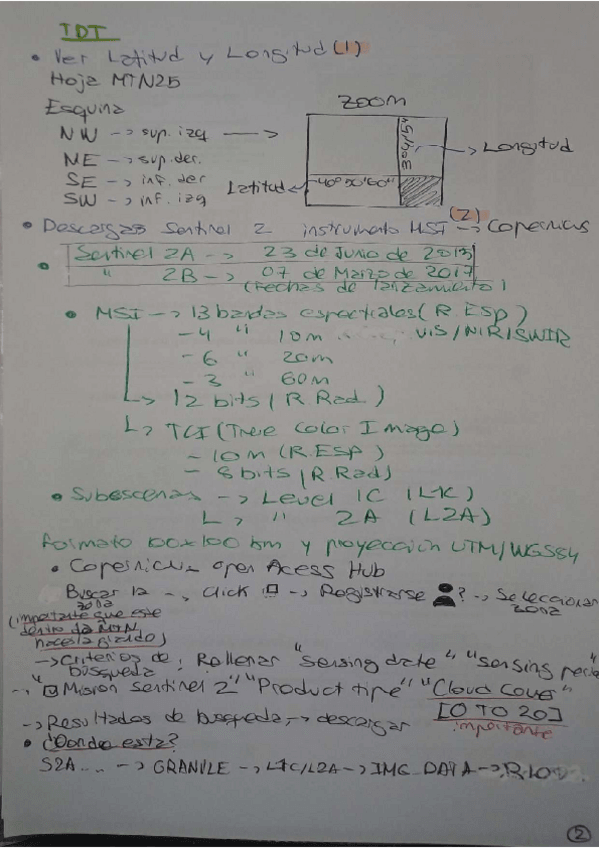 TDT
• Ver Latitud y Longitud (1)
Hoja MTN25
Esquina
NW -> sup. izq ->
NE -> sup. der.
SE -> inf. der
SW -> inf. izq
ZOOM
-> Longitud
Latitud <-
• Descargas Sentinel 2 instrumento MSI (2) -> Copernicus
• Sentinel 2A -> 23 de Junio de 2013
" 2B -> 07 de Marzo de 2017
(Fechas de lanzamiento)
• MSI -> 13 bandas espectrales (R.ESP)
- 4 " 10m ..... VIS/NIR/SWIR
- 6 " 20m
- 3 " 60m
-> 12 bits (R.Rad)
-> TCI (True Color Image)
- 10m (R.ESP)
- 8 bits (R.Rad)
• Subescenas -> Level 1C (L1C)
-> " 2A (L2A)
formato 100x100 km y proyección UTM/WGS84
• Open Acess Hub
Buscar la zona -> click -> Registrarse ? -> Seleccionar zona
(importante que este
dentro la MTN
)
-> Criterios de búsqueda: Rellenar "sensing date" "sensing
-> "Mision Sentinel 2" "Product tipe" "Cloud Cover"
[0 TO 20]
importante
-> Resultados de busqueda -> descargar
• ¿Donde esta?
S2A.... -> GRANULE -> L1C/L2A -> IMG_DATA ->
2